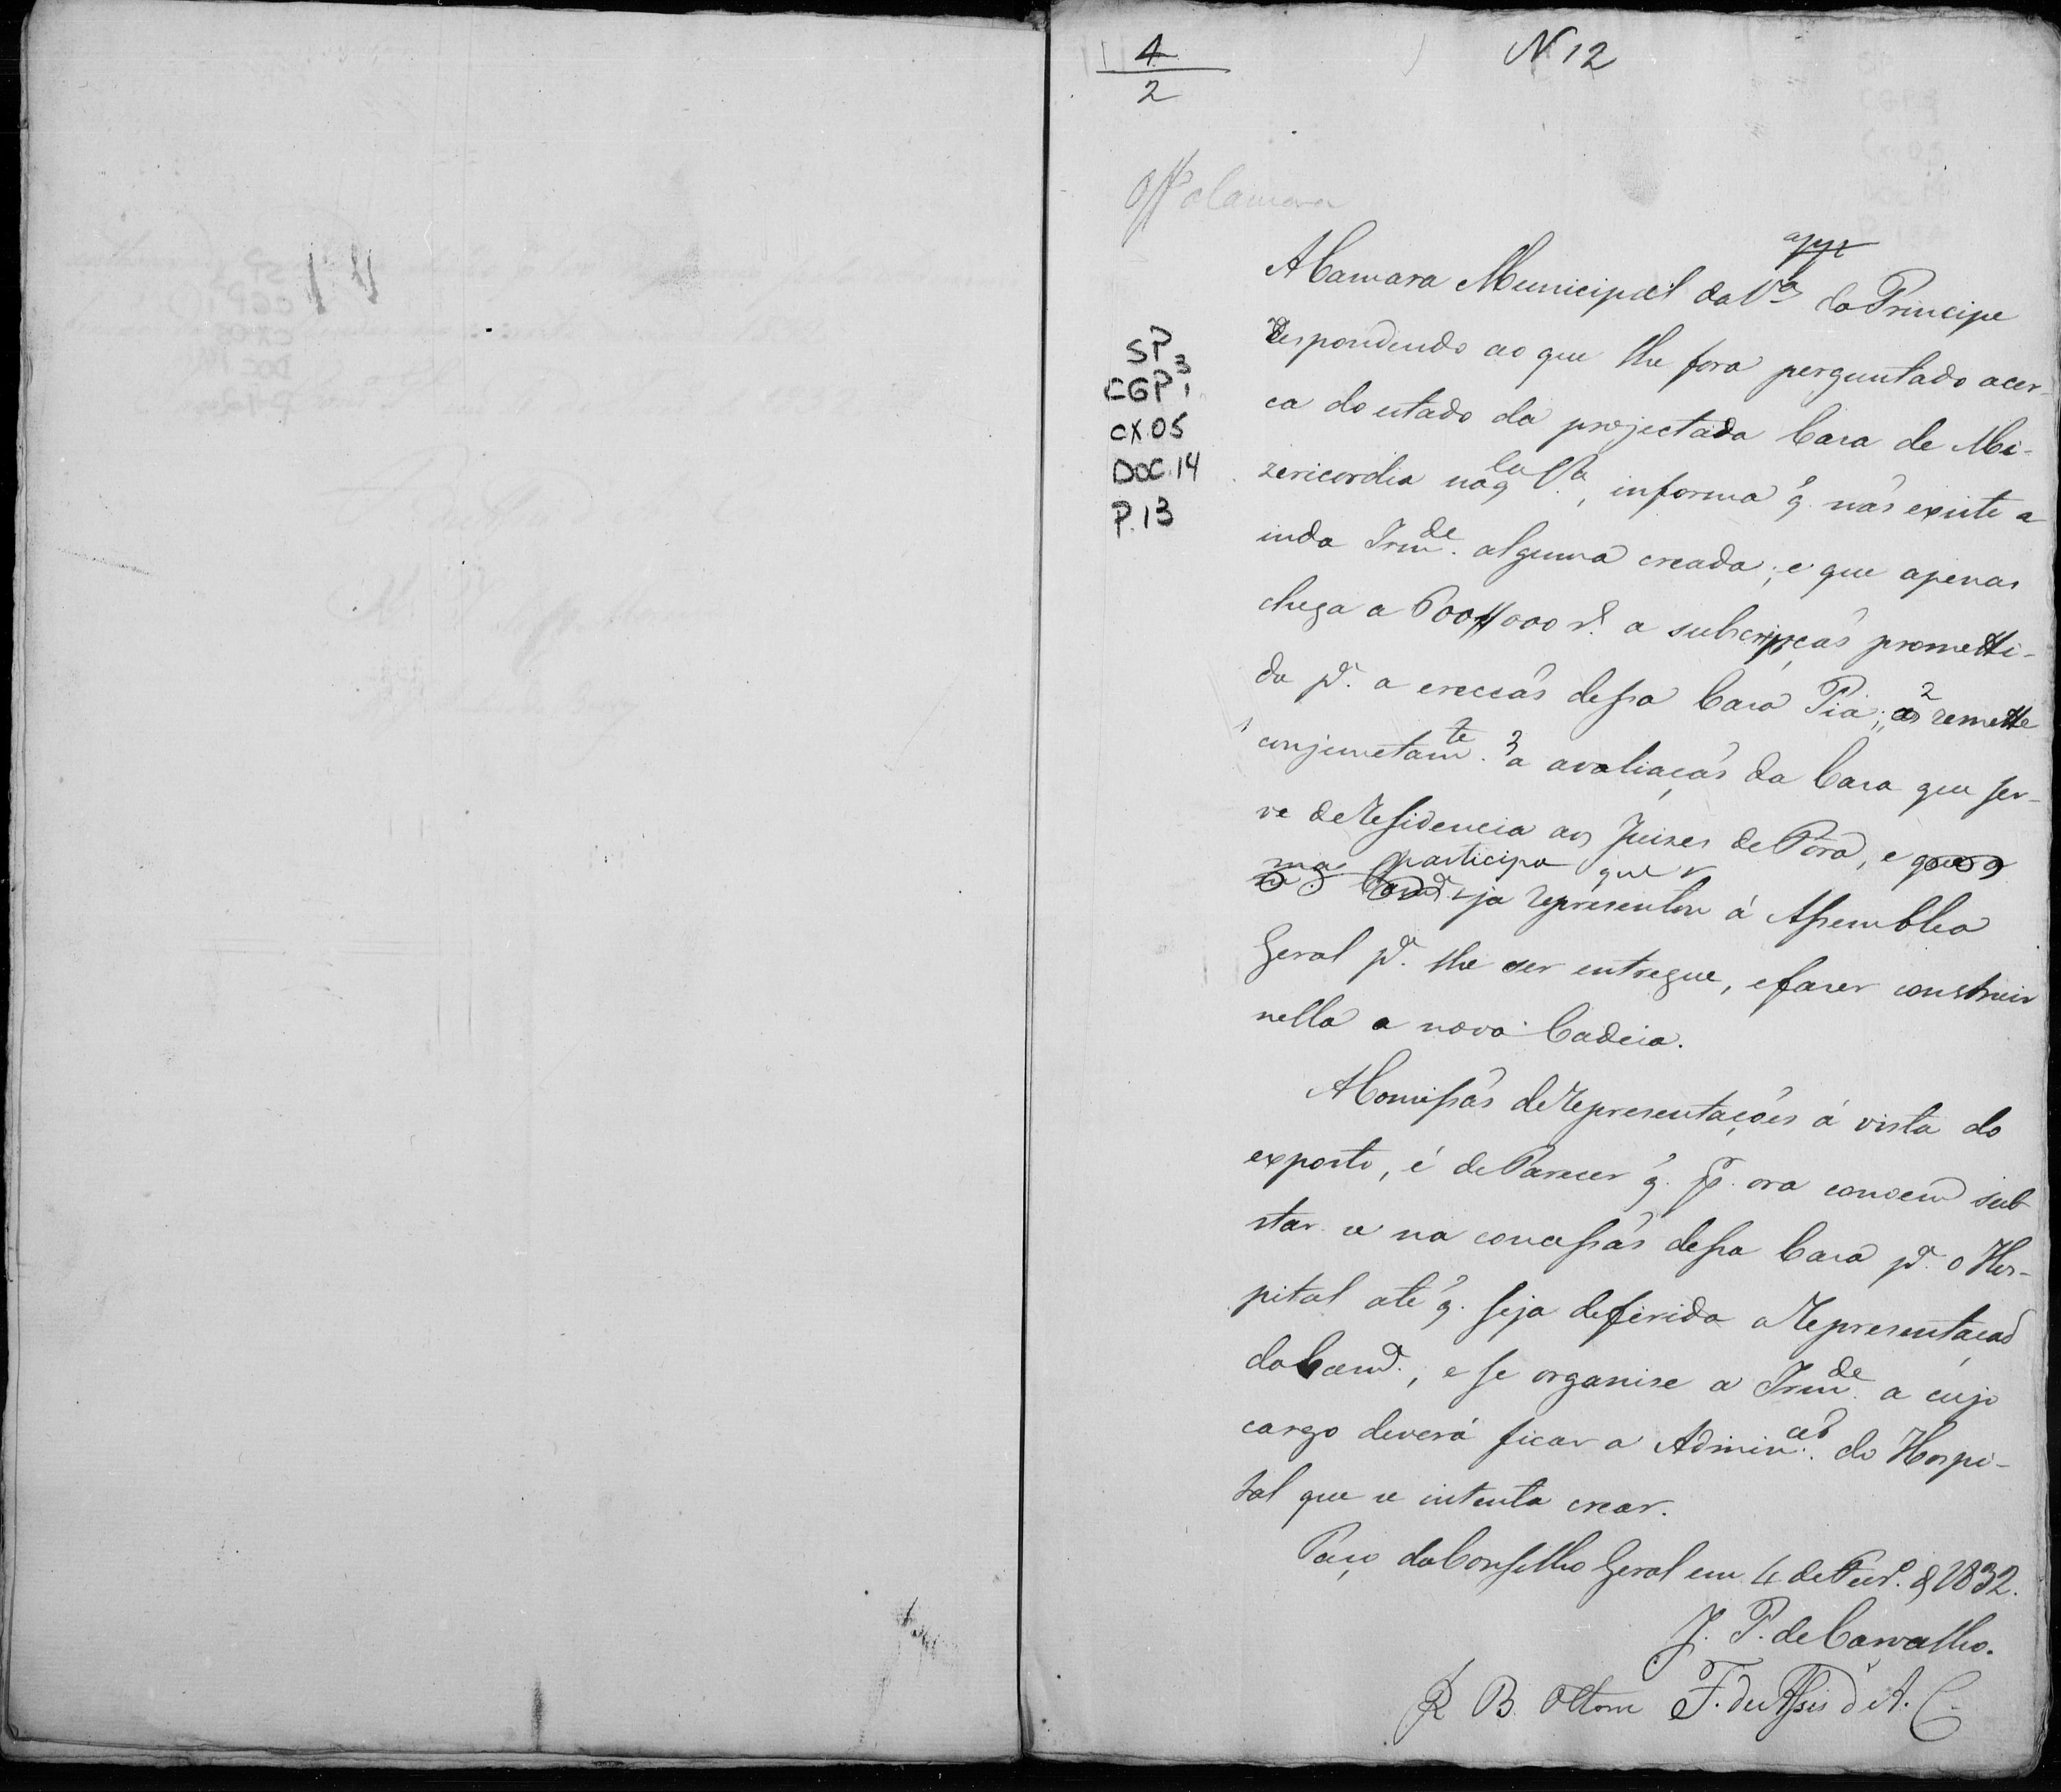 4
2
N 12
Off a Camara
SP 3
CGP 1
CX.05
DOC.14
P.13
appr
A Camara Municipal da Vª do Principe
respondendo ao que lhe fora perguntado acer-
ca do estado da projectada Casa de Mi-
zericordia naqla Vª, informa q. não existe a
inda Irmde. alguma creada; e que apenas
chega a 600#000 r. a subscripção prometti-
da pª. a erecção dessa Casa Pia; 2 remette
1 conjunctamte. 3 a avaliação da Casa que ser-
ve de residencia aos Juizes de Fora, e que a
ma. participa que
ma. Camª. ja representou á Assemblea
Geral pª. lhe ser entregue, e fazer construir
nella a nova Cadeia.
A Comissão de representações á vista do
exposto, é de Parecer q. p. ora convem sub
star se na concessão dessa Casa pª. o Hos-
pital até q. seja deferida a representação
da Camª., e se organise a Irmde. a cujo
cargo deverá ficar a Adminção. do Hospi-
tal que se intenta crear.
Paço do Conselho Geral em 4 de Fevº. de 1832.
J. P. de Carvalho.
B. Ottoni F. de Assis d'A. C.